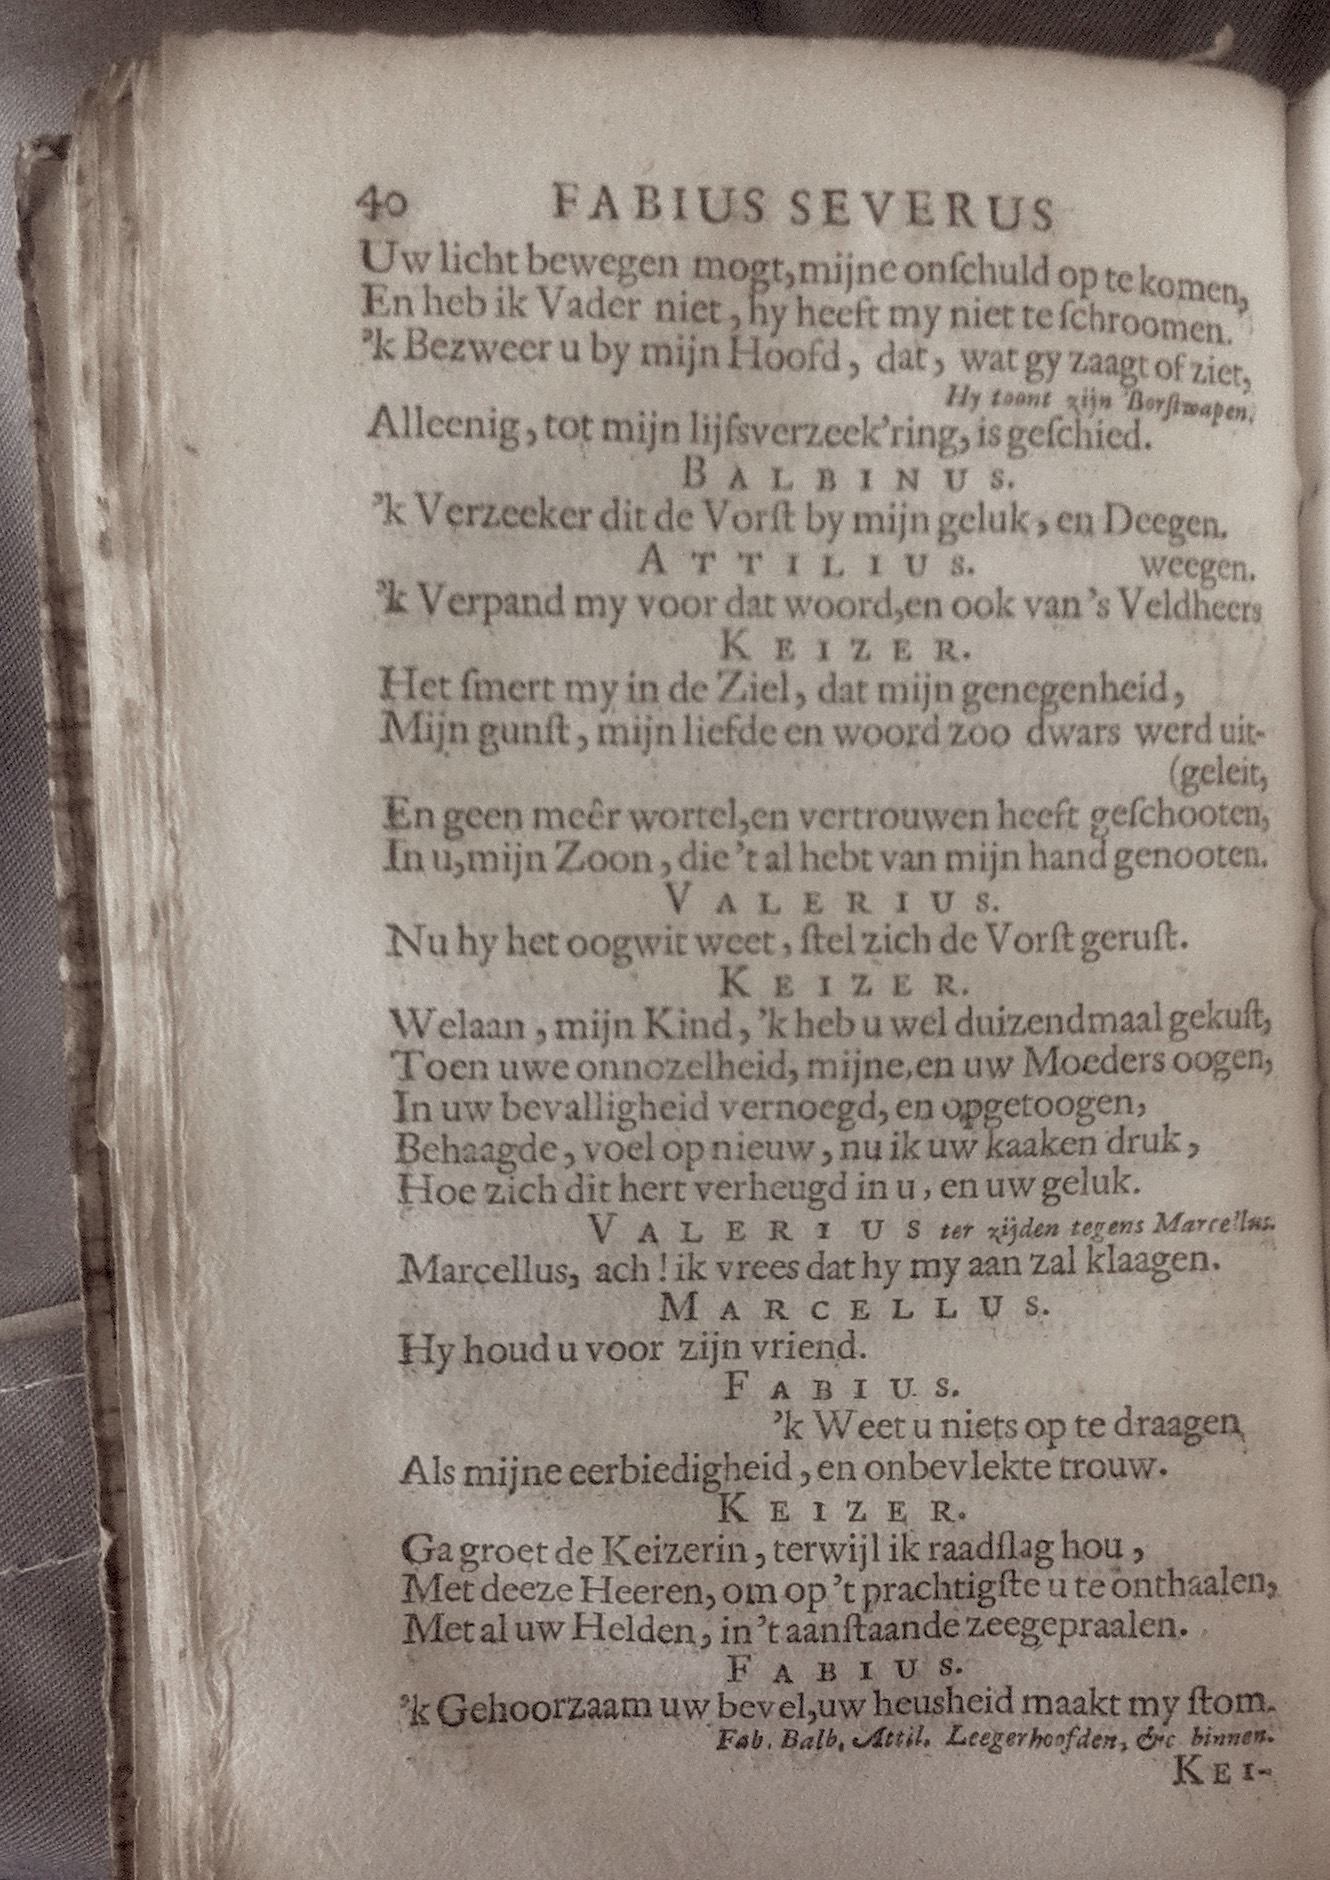 40 FABIUS SEVERUS
Uw licht bewegen mogt, mijne onſchuld op te komen,
En heb ik Vader niet, hy heeft my niet te ſchroomen.
'k Bezweer u by mijn Hoofd, dat, wat gy zaagt of ziet,
Hy toont zijn Borſtwapen.
Alleenig, tot mijn lijfsverzeek'ring, is geſchied.
BALBINUS.
'k Verzeeker dit de Vorſt by mijn geluk, en Deegen.
ATTILIUS. weegen.
'k Verpand my voor dat woord, en ook van 's Veldheers
KEIZER.
Het ſmert my in de Ziel, dat mijn genegenheid,
Mijn gunſt, mijn liefde en woord zoo dwars werd uit-
(geleit,
En geen meêr wortel, en vertrouwen heeft geſchooten,
In u, mijn Zoon, die 't al hebt van mijn hand genooten.
VALERIUS.
Nu hy het oogwit weet, ſtel zich de Vorſt geruſt.
KEIZER.
Welaan, mijn Kind, 'k heb u wel duizendmaal gekuſt,
Toen uwe onnozelheid, mijne, en uw Moeders oogen,
In uw bevalligheid vernoegd, en opgetoogen,
Behaagde, voel op nieuw, nu ik uw kaaken druk,
Hoe zich dit hert verheugd in u, en uw geluk.
VALERIUS ter zijden tegens Marcellus.
Marcellus, ach! ik vrees dat hy my aan zal klaagen.
MARCELLUS.
Hy houd u voor zijn vriend.
FABIUS.
'k Weet u niets op te draagen
Als mijne eerbiedigheid, en onbevlekte trouw.
KEIZER.
Ga groet de Keizerin, terwijl ik raadſlag hou,
Met deeze Heeren, om op 't prachtigſte u te onthaalen,
Met al uw Helden, in 't aanſtaande zeegepraalen.
FABIUS.
'k Gehoorzaam uw bevel, uw heusheid maakt my ſtom.
Fab. Balb. Attil. Leegerhoofden, &c binnen.
KEI-